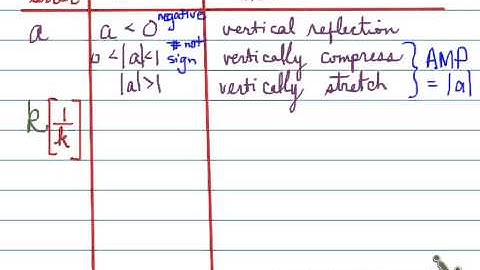 negative
a a < 0 vertical reflection
# not
sign
0 < |a| < 1 vertically compress } AMP
|a| > 1 vertically stretch } = |a|
k [1/k]